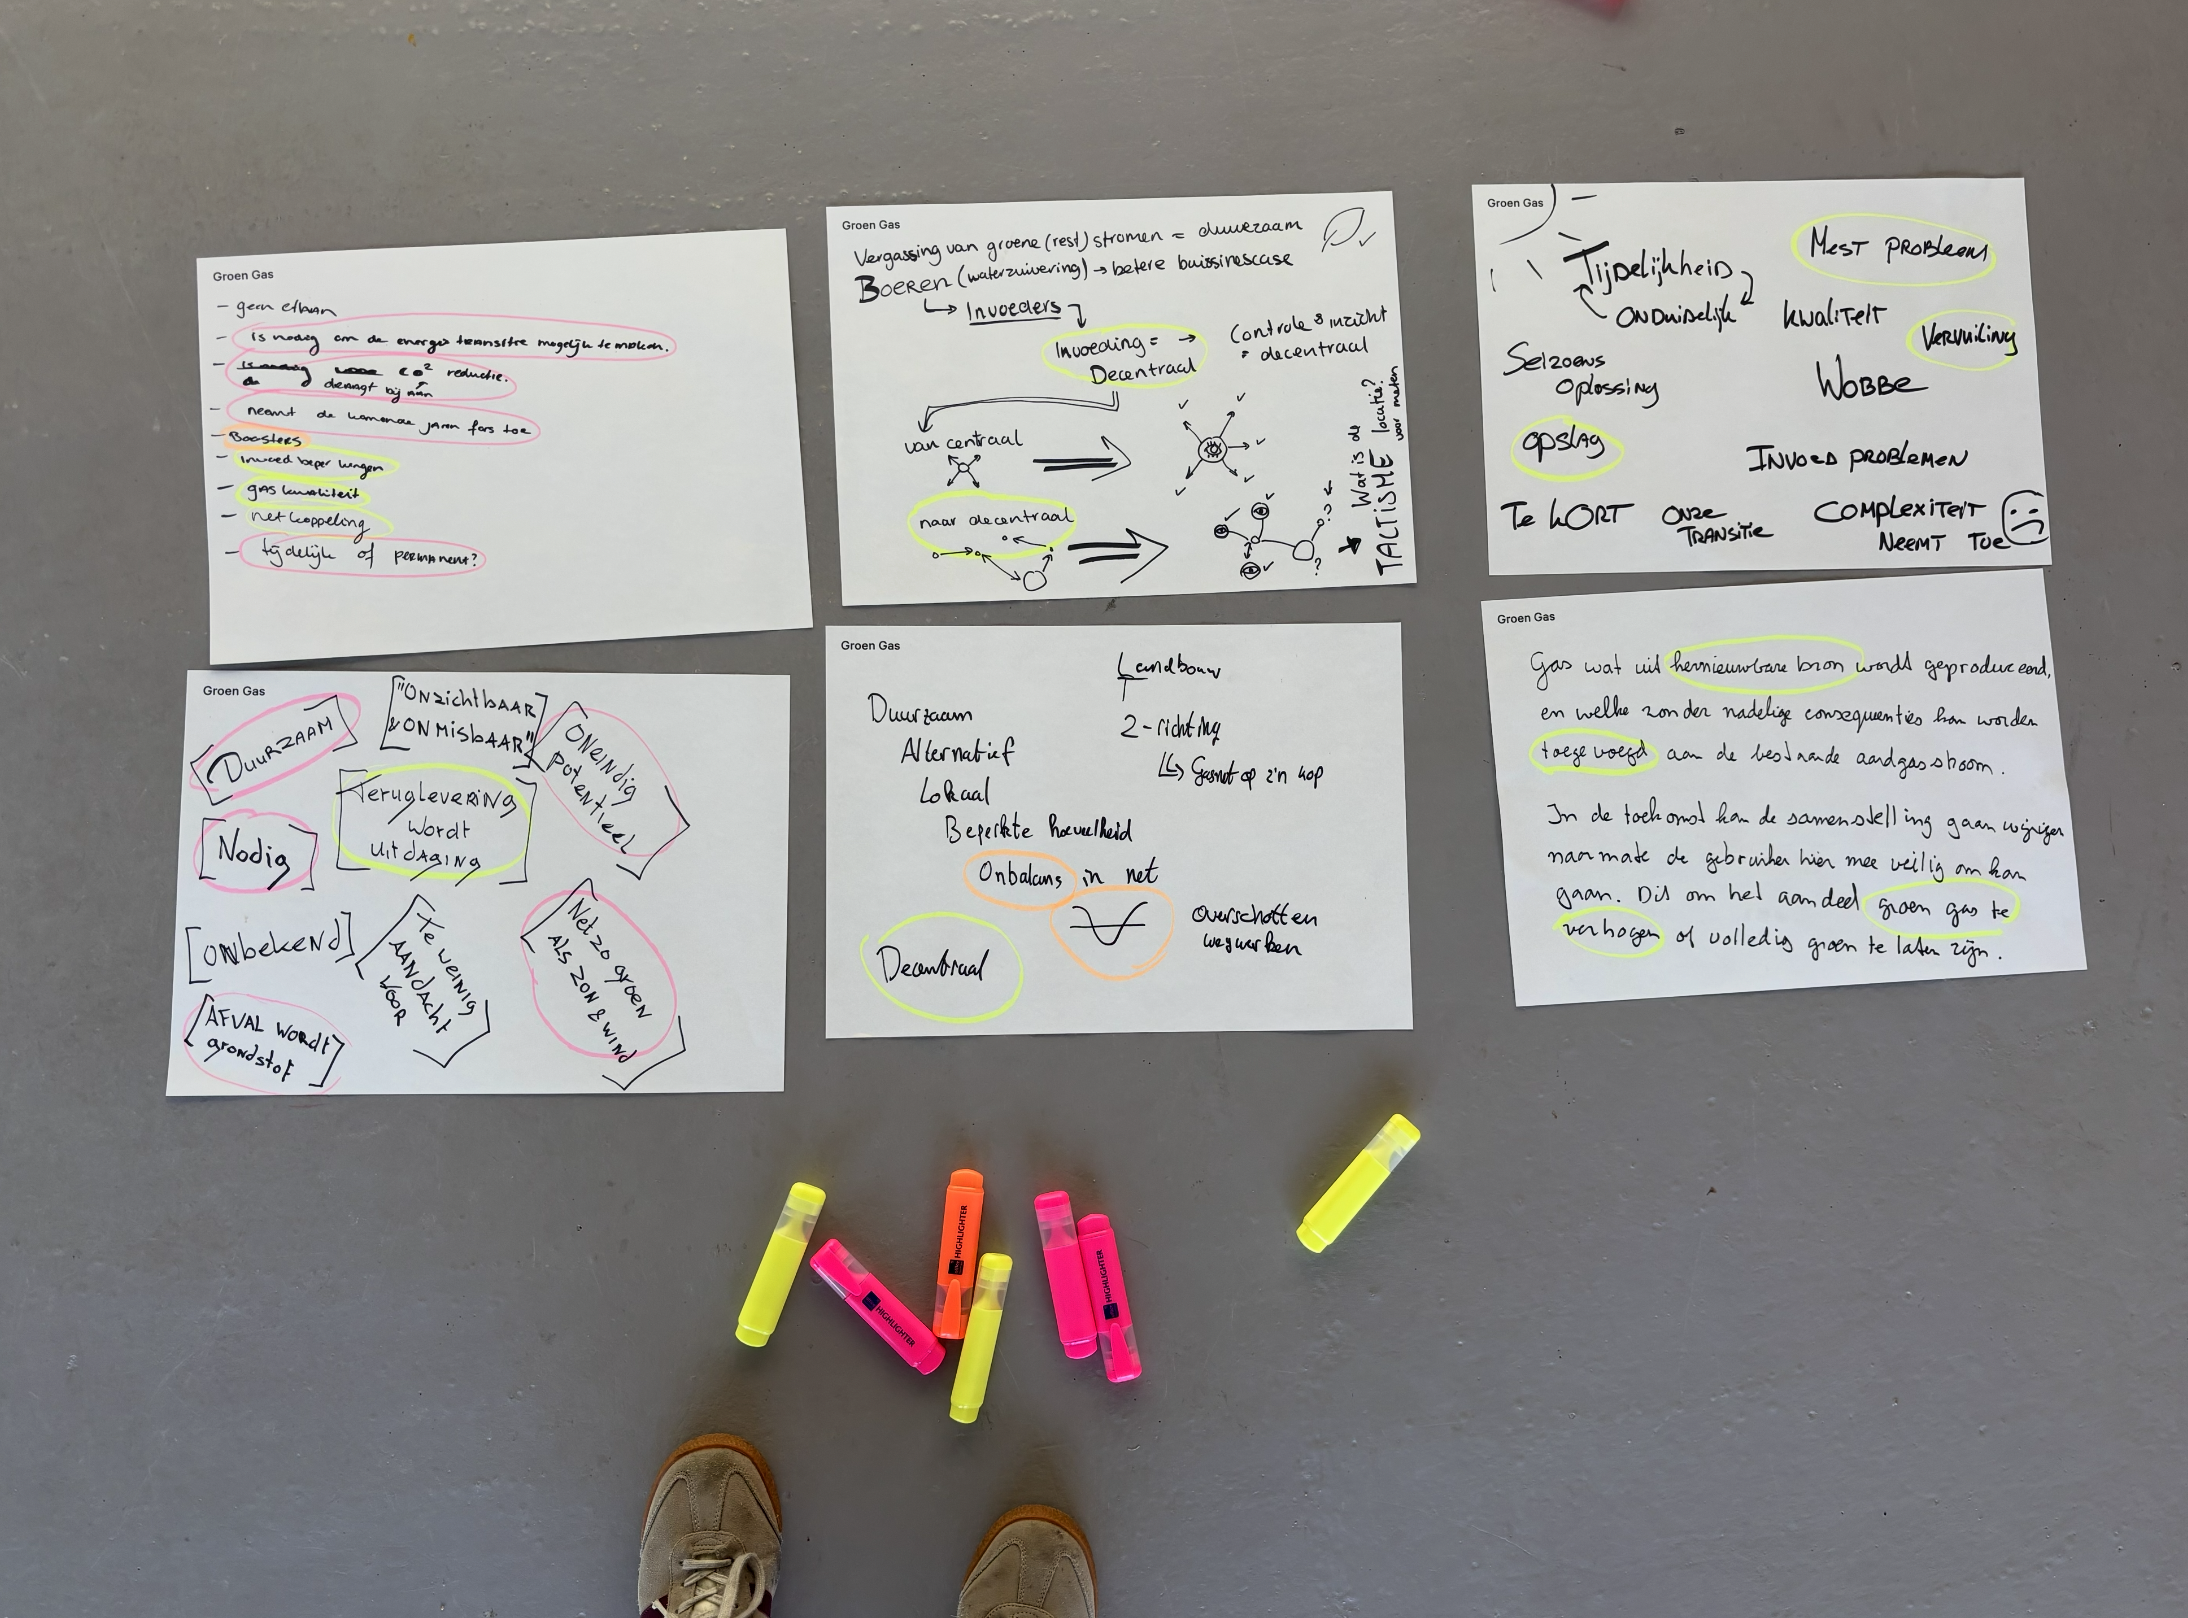 Groen Gas
- geen ethaan
- is nodig om de energie transitie mogelijk te maken.
- CO² reductie.
draagt bij aan
- neemt de komende jaren fors toe
- Boosters
- invoed beperkingen
- gaskwaliteit
- netkoppeling
- tijdelijk of permanent?
Groen Gas
Vergassing van groene (rest) stromen = duurzaam
Boeren (waterzuivering) → betere buissinescase
↳ Invoeders
Invoeding = →
Decentraal
Controle & inzicht
= decentraal
van centraal
naar decentraal
Wat is de locatie?
voor meten
TACTISME
Groen Gas
Tijdelijkheid
ONDuidelijk
Mest probleem
kwaliteit
Vervuiling
Seizoens
oplossing
Wobbe
opslag
Invoed problemen
Te kort
onze
transitie
Complexiteit
neemt toe
Groen Gas
[Duurzaam]
["Onzichtbaar
& onmisbaar"]
[Oneindig
potentieel]
[Teruglevering
wordt
uitdaging]
[Nodig]
[onbekend]
[Te weinig
aandacht
voor]
[Net zo groen
als zon & wind]
[Afval wordt
grondstof]
Groen Gas
Landbouw
Duurzaam
2-richting
Alternatief
↳ Gasnet op z'n kop
Lokaal
Beperkte hoeveelheid
Onbalans in net
Overschotten
wegwerken
Decentraal
Groen Gas
Gas wat uit hernieuwbare bron wordt geproduceerd,
en welke zonder nadelige consequenties kan worden
toegevoegd aan de bestaande aardgasstroom.
In de toekomst kan de samenstelling gaan wijzigen
naarmate de gebruiker hier mee veilig om kan
gaan. Dit om het aandeel groen gas te
verhogen of volledig groen te laten zijn.
HIGHLIGHTER
HIGHLIGHTER
HIGHLIGHTER